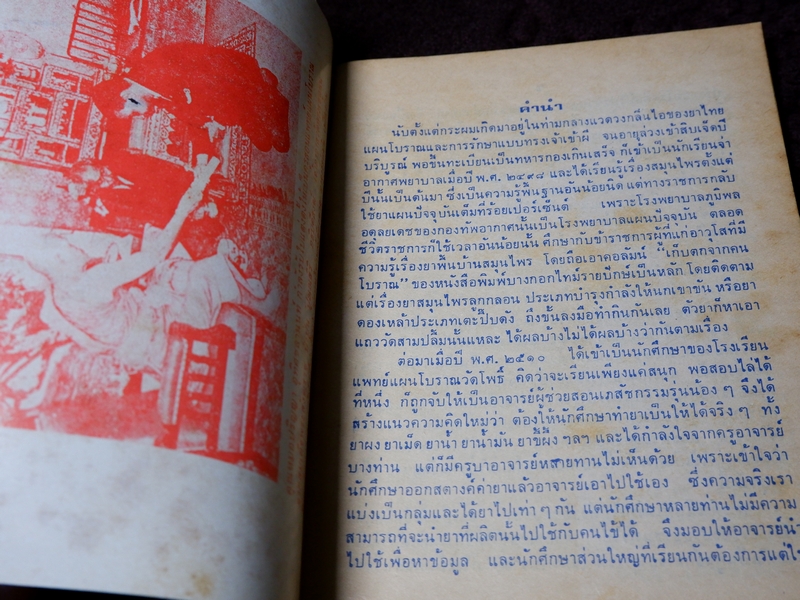 คำนำ
นับตั้งแต่กระผมเกิดมาอยู่ในท่ามกลางแวดวงกลิ่นไอของยาไทย
แผนโบราณและการรักษาแบบทรงเจ้าเข้าผี จนอายุล่วงเข้าสิบเจ็ดปี
บริบูรณ์ พอขึ้นทะเบียนเป็นทหารกองเกินเสร็จ ก็เข้าเป็นนักเรียนจ่า
อากาศพยาบาลเมื่อปี พ.ศ. ๒๔๙๘ และได้เรียนรู้เรื่องสมุนไพรตั้งแต่
ปีนั้นเป็นต้นมา ซึ่งเป็นความรู้พื้นฐานอันน้อยนิด แต่ทางราชการกลับ
ใช้ยาแผนปัจจุบันเต็มที่ร้อยเปอร์เซ็นต์ เพราะโรงพยาบาลภูมิพล
อดุลยเดชของกองทัพอากาศนั้นเป็นโรงพยาบาลแผนปัจจุบัน ตลอด
ชีวิตราชการก็ใช้เวลาอันน้อยนั้น ศึกษากับข้าราชการผู้ที่แก่อาวุโสที่มี
ความรู้เรื่องยาพื้นบ้านสมุนไพร โดยถือเอาคอลัมน์ "เก็บตกจากคน
โบราณ" ของหนังสือพิมพ์บางกอกไทม์รายปักษ์เป็นหลัก โดยติดตาม
แต่เรื่องยาสมุนไพรลูกกลอน ประเภทบำรุงกำลังให้นกเขาขัน หรือยา
ดองเหล้าประเภทเตะปี๊บดัง ถึงขั้นลงมือทำกินกันเลย ตัวยาก็หาเอา
แถววัดสามปลื้มนั้นแหละ ได้ผลบ้างไม่ได้ผลบ้างว่ากันตามเรื่อง
ต่อมาเมื่อปี พ.ศ. ๒๕๑๐ ได้เข้าเป็นนักศึกษาของโรงเรียน
แพทย์แผนโบราณวัดโพธิ์ คิดว่าจะเรียนเพียงแค่สนุก พอสอบไล่ได้
ที่หนึ่ง ก็ถูกจับให้เป็นอาจารย์ผู้ช่วยสอนเภสัชกรรมรุ่นน้อง ๆ จึงได้
สร้างแนวความคิดใหม่ว่า ต้องให้นักศึกษาทำยาเป็นให้ได้จริง ๆ ทั้ง
ยาผง ยาเม็ด ยาน้ำ ยาน้ำมัน ยาขี้ผึ้ง ฯลฯ และได้กำลังใจจากครูอาจารย์
บางท่าน แต่ก็มีครูบาอาจารย์หลายท่านไม่เห็นด้วย เพราะเข้าใจว่า
นักศึกษาออกสตางค์ค่ายาแล้วอาจารย์เอาไปใช้เอง ซึ่งความจริงเรา
แบ่งเป็นกลุ่มและได้ยาไปเท่า ๆ กัน แต่นักศึกษาหลายท่านไม่มีความ
สามารถที่จะนำยาที่ผลิตนั้นไปใช้กับคนไข้ได้ จึงมอบให้อาจารย์นำ
ไปใช้เพื่อหาข้อมูล และนักศึกษาส่วนใหญ่ที่เรียนกันต้องการแต่